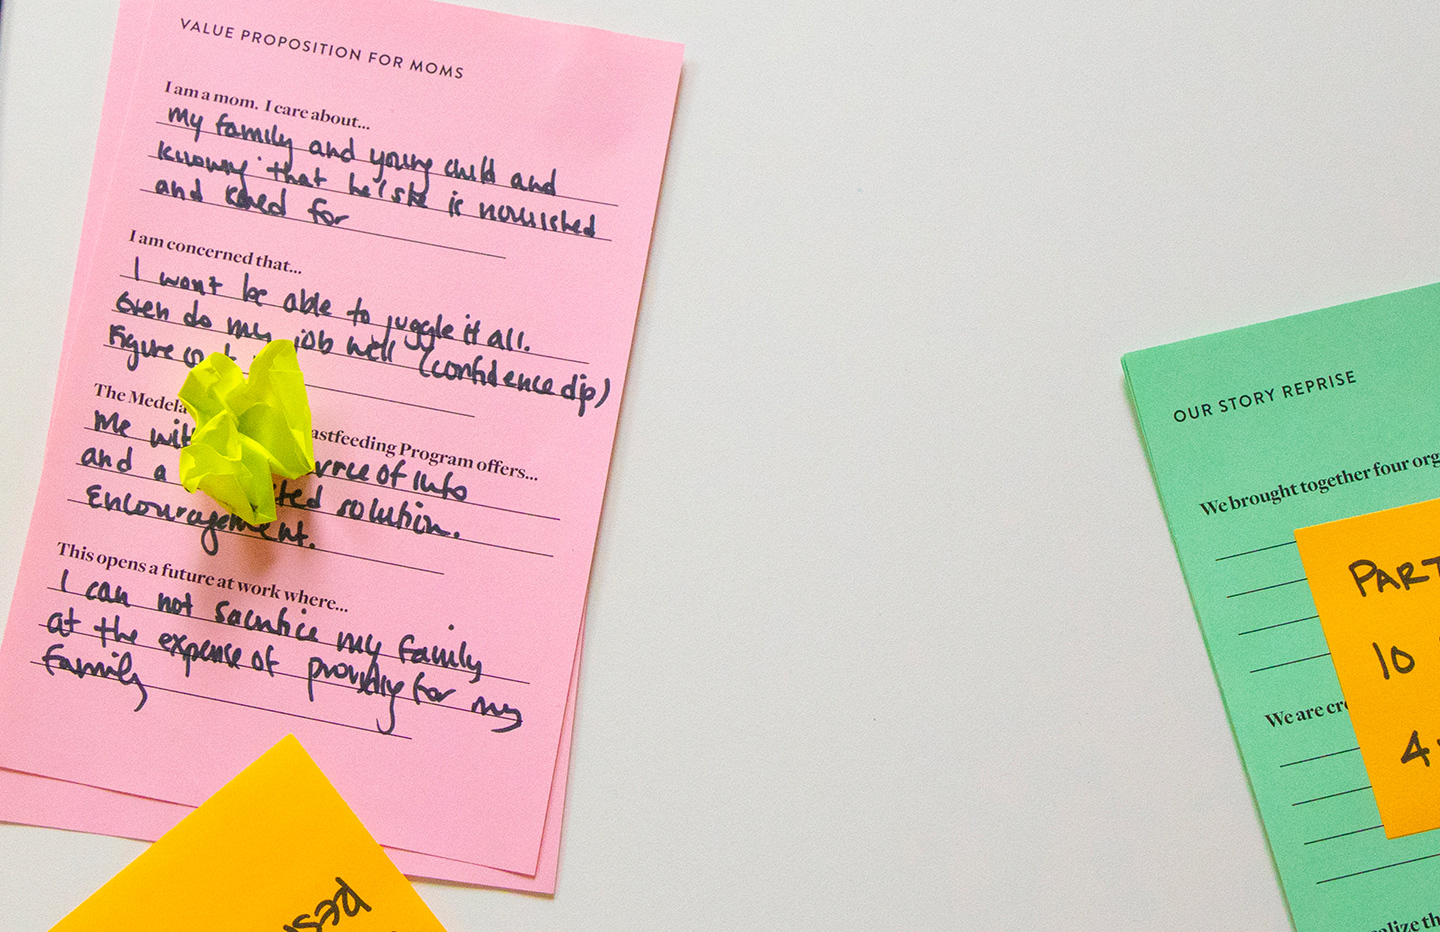 VALUE PROPOSITION FOR MOMS
I am a mom. I care about...
My family and young child and
knowing that he/she is nourished
and cared for
I am concerned that...
I won't be able to juggle it all.
Even do my job well (confidence dip)
Figure
The Medela astfeeding Program offers...
Me of info
and a solution.
Encouragement.
This opens a future at work where...
I can not sacrifice my family
at the expense of providing for my
family
OUR STORY REPRISE
We brought together four org
We are cre
PART
10
4
alize th